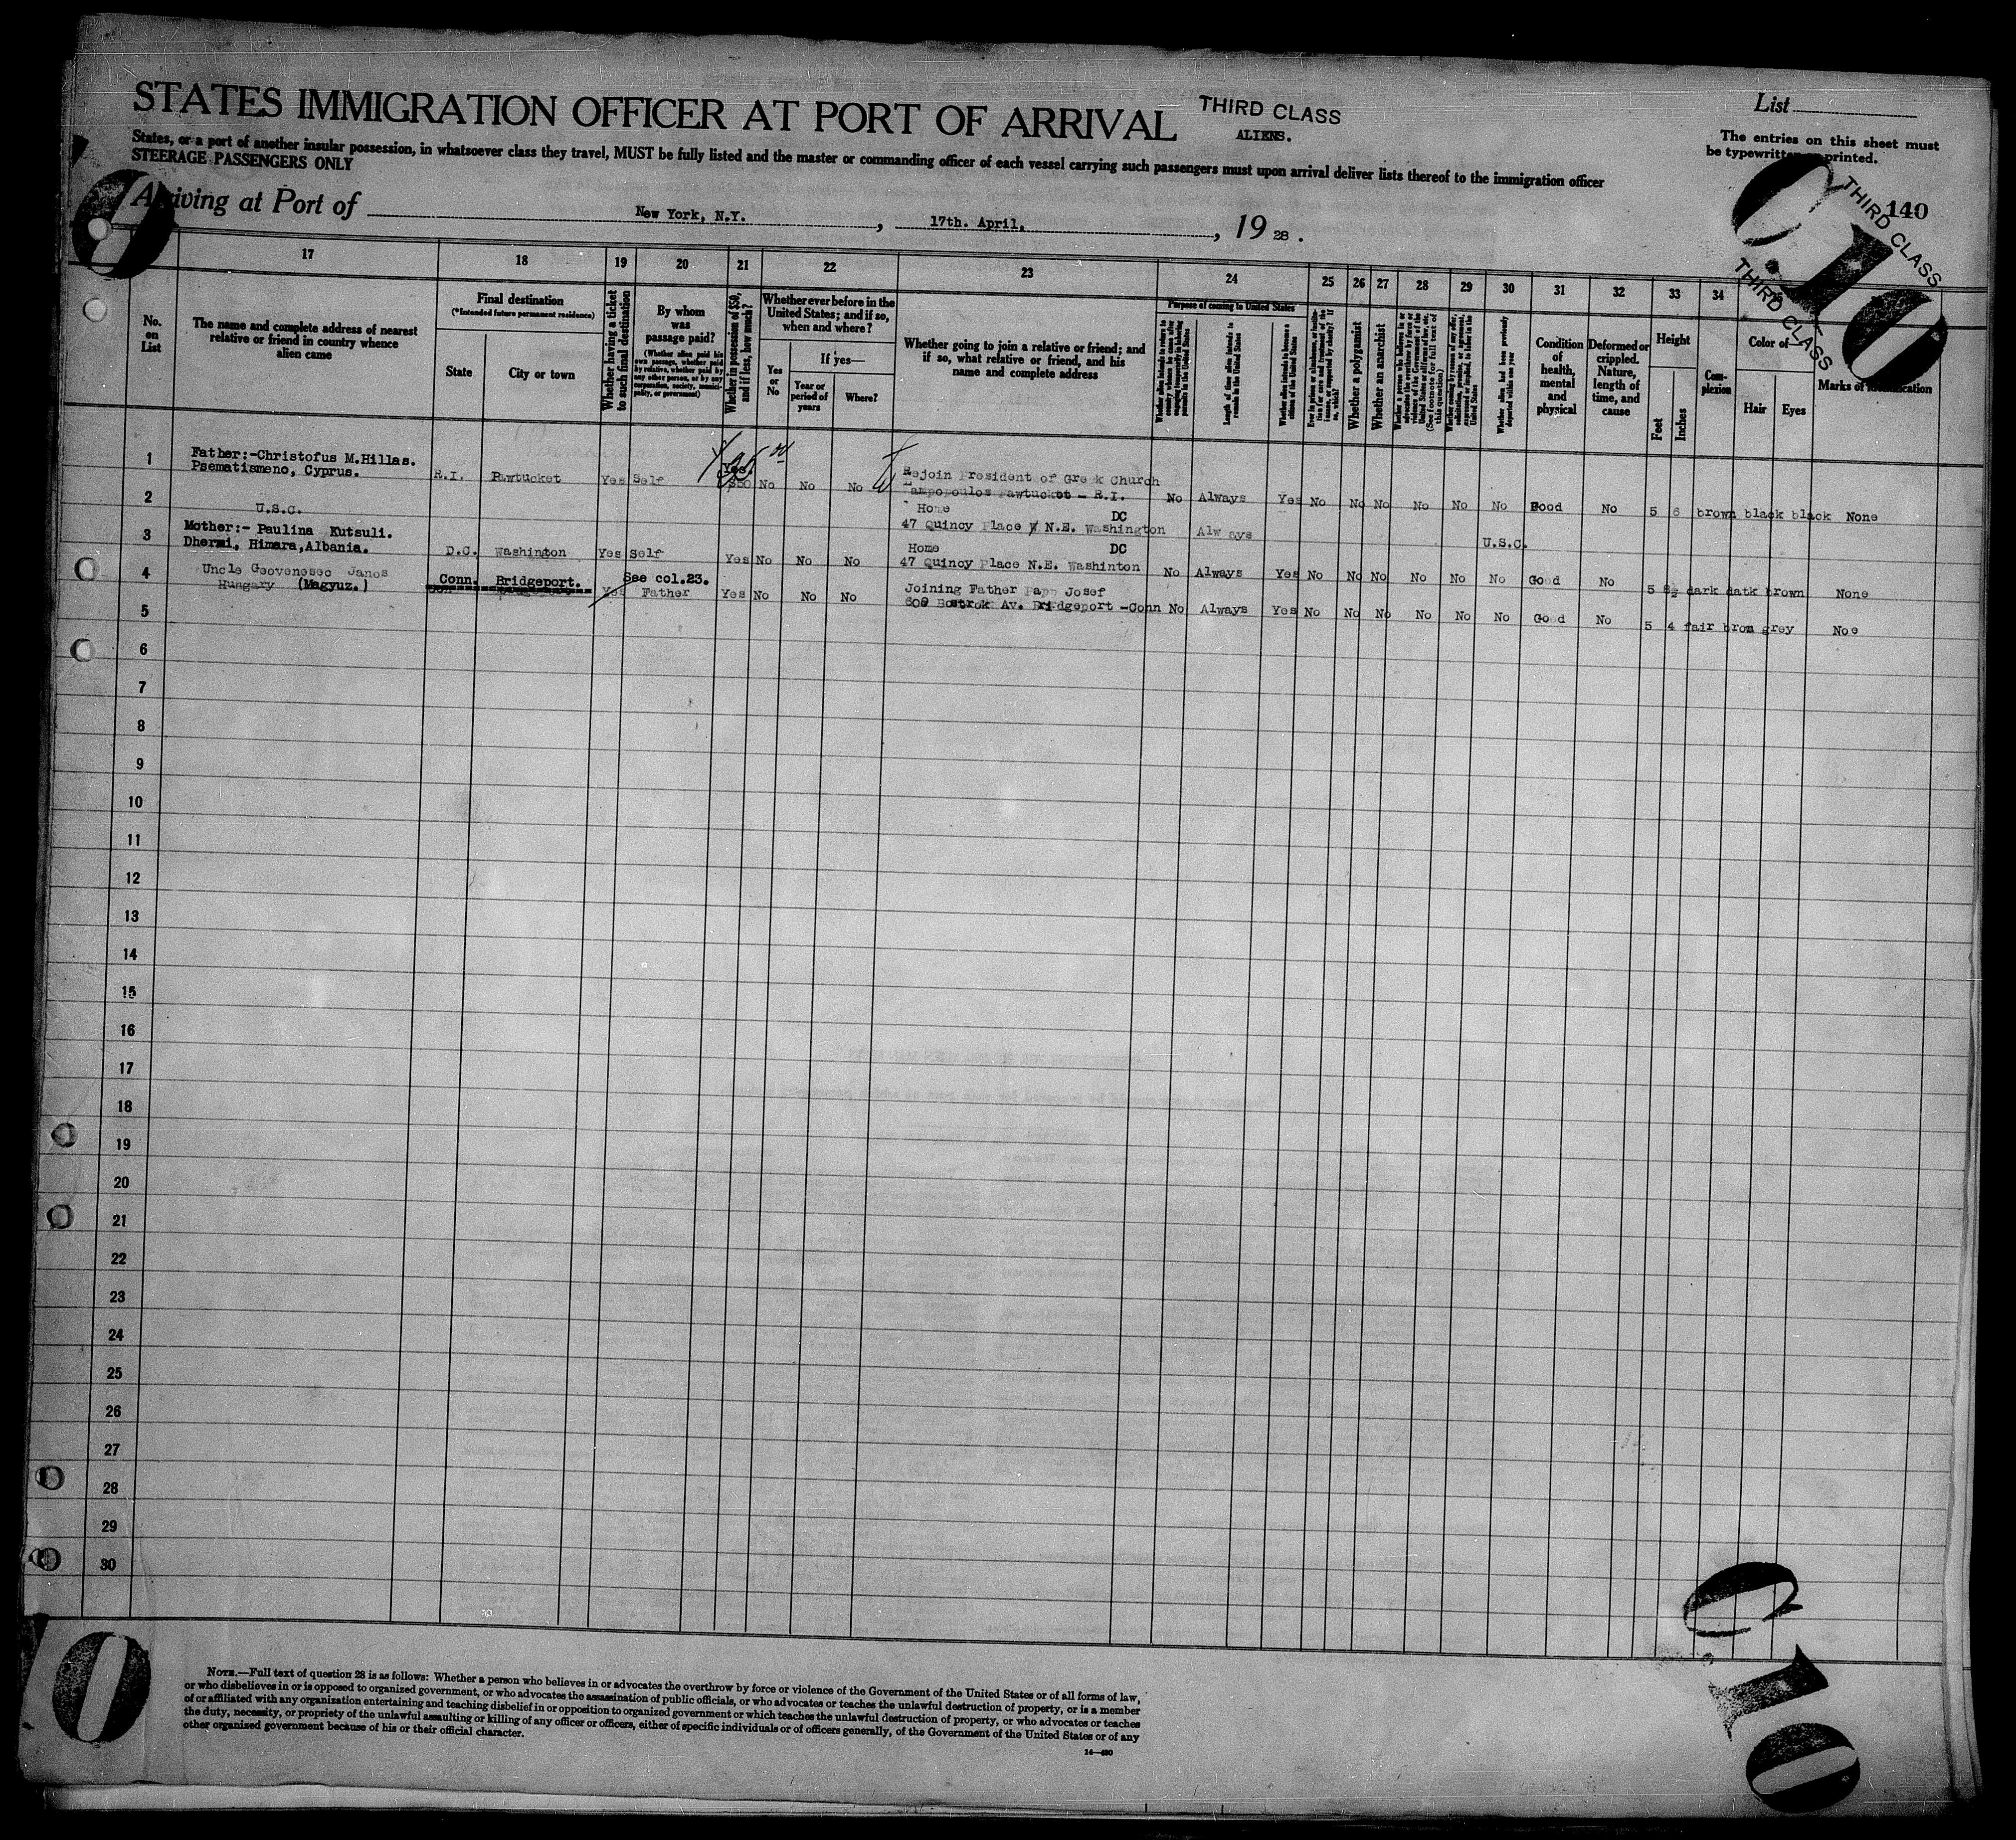 STATES IMMIGRATION OFFICER AT PORT OF ARRIVAL
THIRD CLASS
ALIENS.
List
States, or a port of another insular possession, in whatsoever class they travel, MUST be fully listed and the master or commanding officer of each vessel carrying such passengers must upon arrival deliver lists thereof to the immigration officer
STEERAGE PASSENGERS ONLY
The entries on this sheet must
be typewritten printed.
Arriving at Port of New York, N.Y. , 17th. April, , 19 28 .
140
C 10
THIRD CLASS
THIRD CLASS
17 18 19 20 21 22 23 24 25 26 27 28 29 30 31 32 33 34
No. on List
The name and complete address of nearest relative or friend in country whence alien came
Final destination
(*Intended future permanent residence)
State
City or town
Whether having a ticket to such final destination
By whom was passage paid?
(Whether alien paid his own passage, whether paid by relative, whether paid by any other person, or by any corporation, society, municipality, or government)
Whether in possession of $50, and if less, how much?
Whether ever before in the United States; and if so, when and where?
Yes or No
If yes—
Year or period of years
Where?
Whether going to join a relative or friend; and if so, what relative or friend, and his name and complete address
Purpose of coming to United States
Length of time alien intends to remain in the United States
Whether alien intends to become a citizen of the United States
Whether a polygamist
Whether an anarchist
(See footnote for full text of this question)
Whether alien had been previously deported within one year
Condition of health, mental and physical
Deformed or crippled. Nature, length of time, and cause
Height
Feet
Inches
Complexion
Color of—
Hair
Eyes
Marks of identification
1
Father:-Christofus M.Hillas.
Psematismeno, Cyprus. R.I. Pawtucket Yes Self Yes. $50 No No No
Rejoin President of Greek Church
Pawtucket - R.I. No Always Yes No No No No No No Good No 5 6 brown black black None
2
U.S.C.
Home DC
47 Quincy Place N.E. Washington Always U.S.C.
3
Mother:- Paulina Kutsuli.
Dhermi, Himara,Albania. D.C. Washington Yes Self Yes No No No
Home DC
47 Quincy Place N.E. Washinton No Always Yes No No No No No No Good No 5 8½ dark datk brown None
4
Uncle Geovenesec Janos
Hungary (Magyuz.) Conn. Bridgeport. Yes See col.23. Father Yes No No No
Joining Father Papp Josef
609 Bostrok Av. Bridgeport -Conn No Always Yes No No No No No No Good No 5 4 fair brom grey Noe
5
6
7
8
9
10
11
12
13
14
15
16
17
18
19
20
21
22
23
24
25
26
27
28
29
30
NOTE.—Full text of question 28 is as follows: Whether a person who believes in or advocates the overthrow by force or violence of the Government of the United States or of all forms of law,
or who disbelieves in or is opposed to organized government, or who advocates the assassination of public officials, or who advocates or teaches the unlawful destruction of property, or is a member
of or affiliated with any organization entertaining and teaching disbelief in or opposition to organized government or which teaches the unlawful destruction of property, or who advocates or teaches
the duty, necessity, or propriety of the unlawful assaulting or killing of any officer or officers, either of specific individuals or of officers generally, of the Government of the United States or of any
other organized government because of his or their official character.
14—480
0
C 10